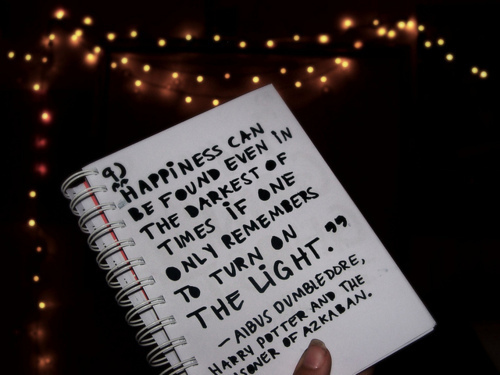 "HAPPINESS CAN
BE FOUND EVEN IN
THE DARKEST OF
TIMES IF ONE
ONLY REMEMBERS
TO TURN ON
THE LIGHT."
—AlBUS DUMBLEDORE,
HARRY POTTER AND THE
ISONER OF AZKABAN.